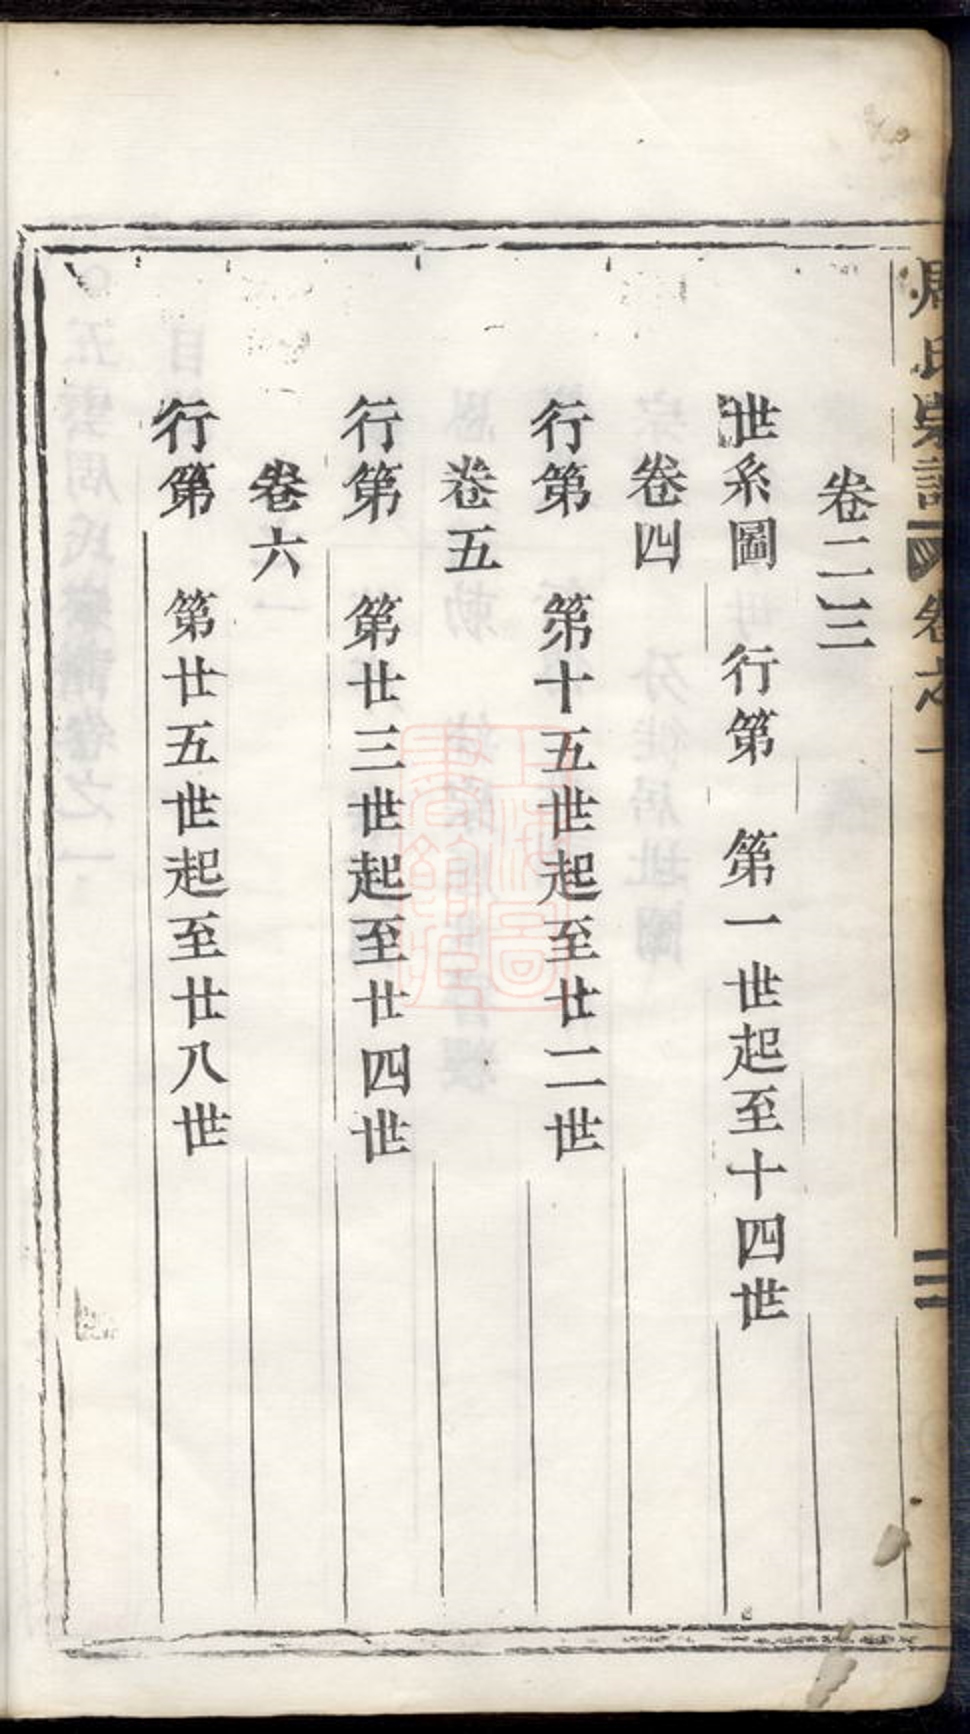 周氏宗譜 卷之一 二
卷二三
世系圖 行第 第一世起至十四世
卷四
行第 第十五世起至廿二世
卷五
行第 第廿三世起至廿四世
卷六
行第 第廿五世起至廿八世